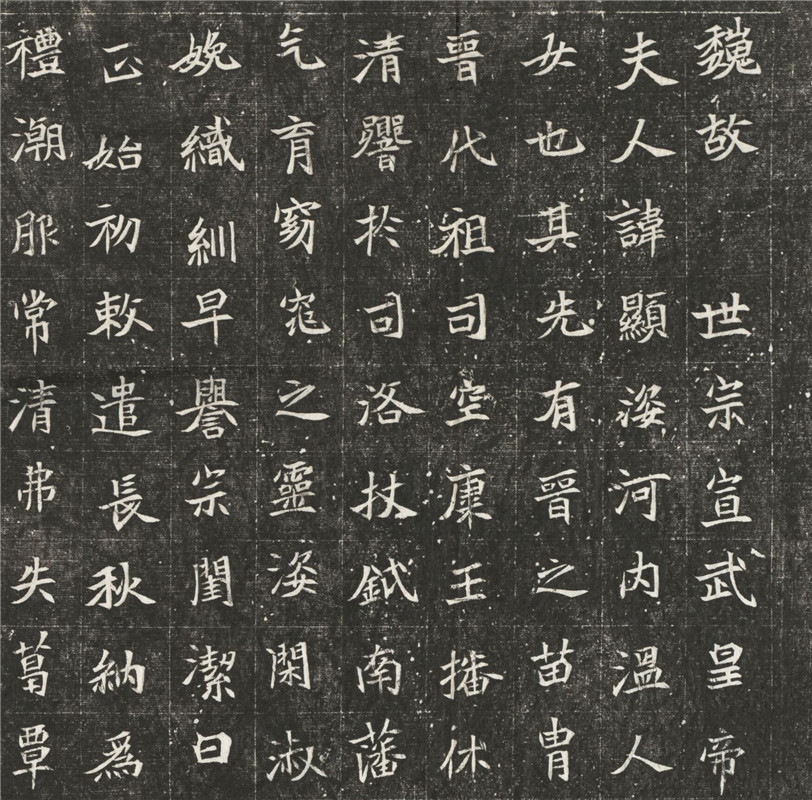 魏故　世宗宣武皇帝
夫人諱顯姿河内溫人
女也其先有晉之苗胄
晉代祖司空康王播休
清響於司洛杖鉞南藩
气育窈窕之靈姿閑淑
婉織紃早譽宗閨潔曰
正始初敕遣長秋納為
禮潮服常清弗失葛覃